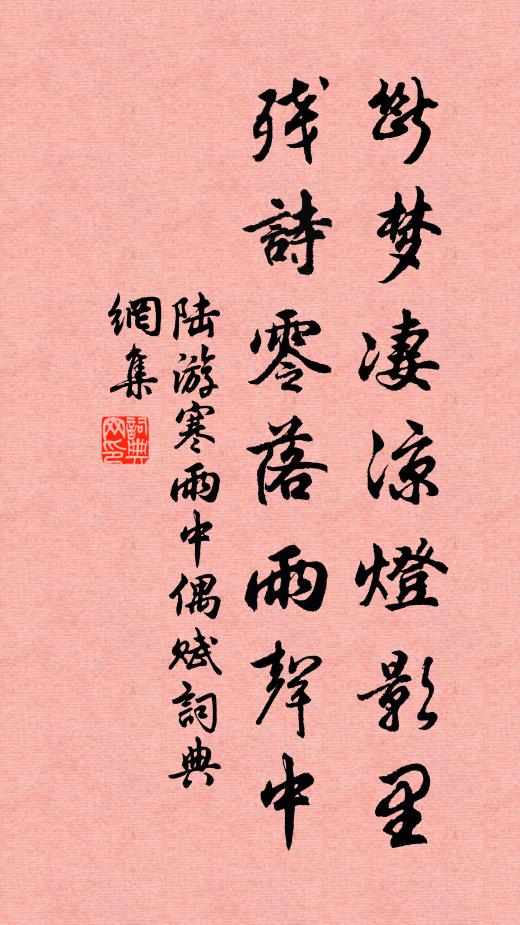 断梦凄凉燈影里
残詩零落雨聲中
陆游寒雨中偶赋詞典
網集
詞典网印